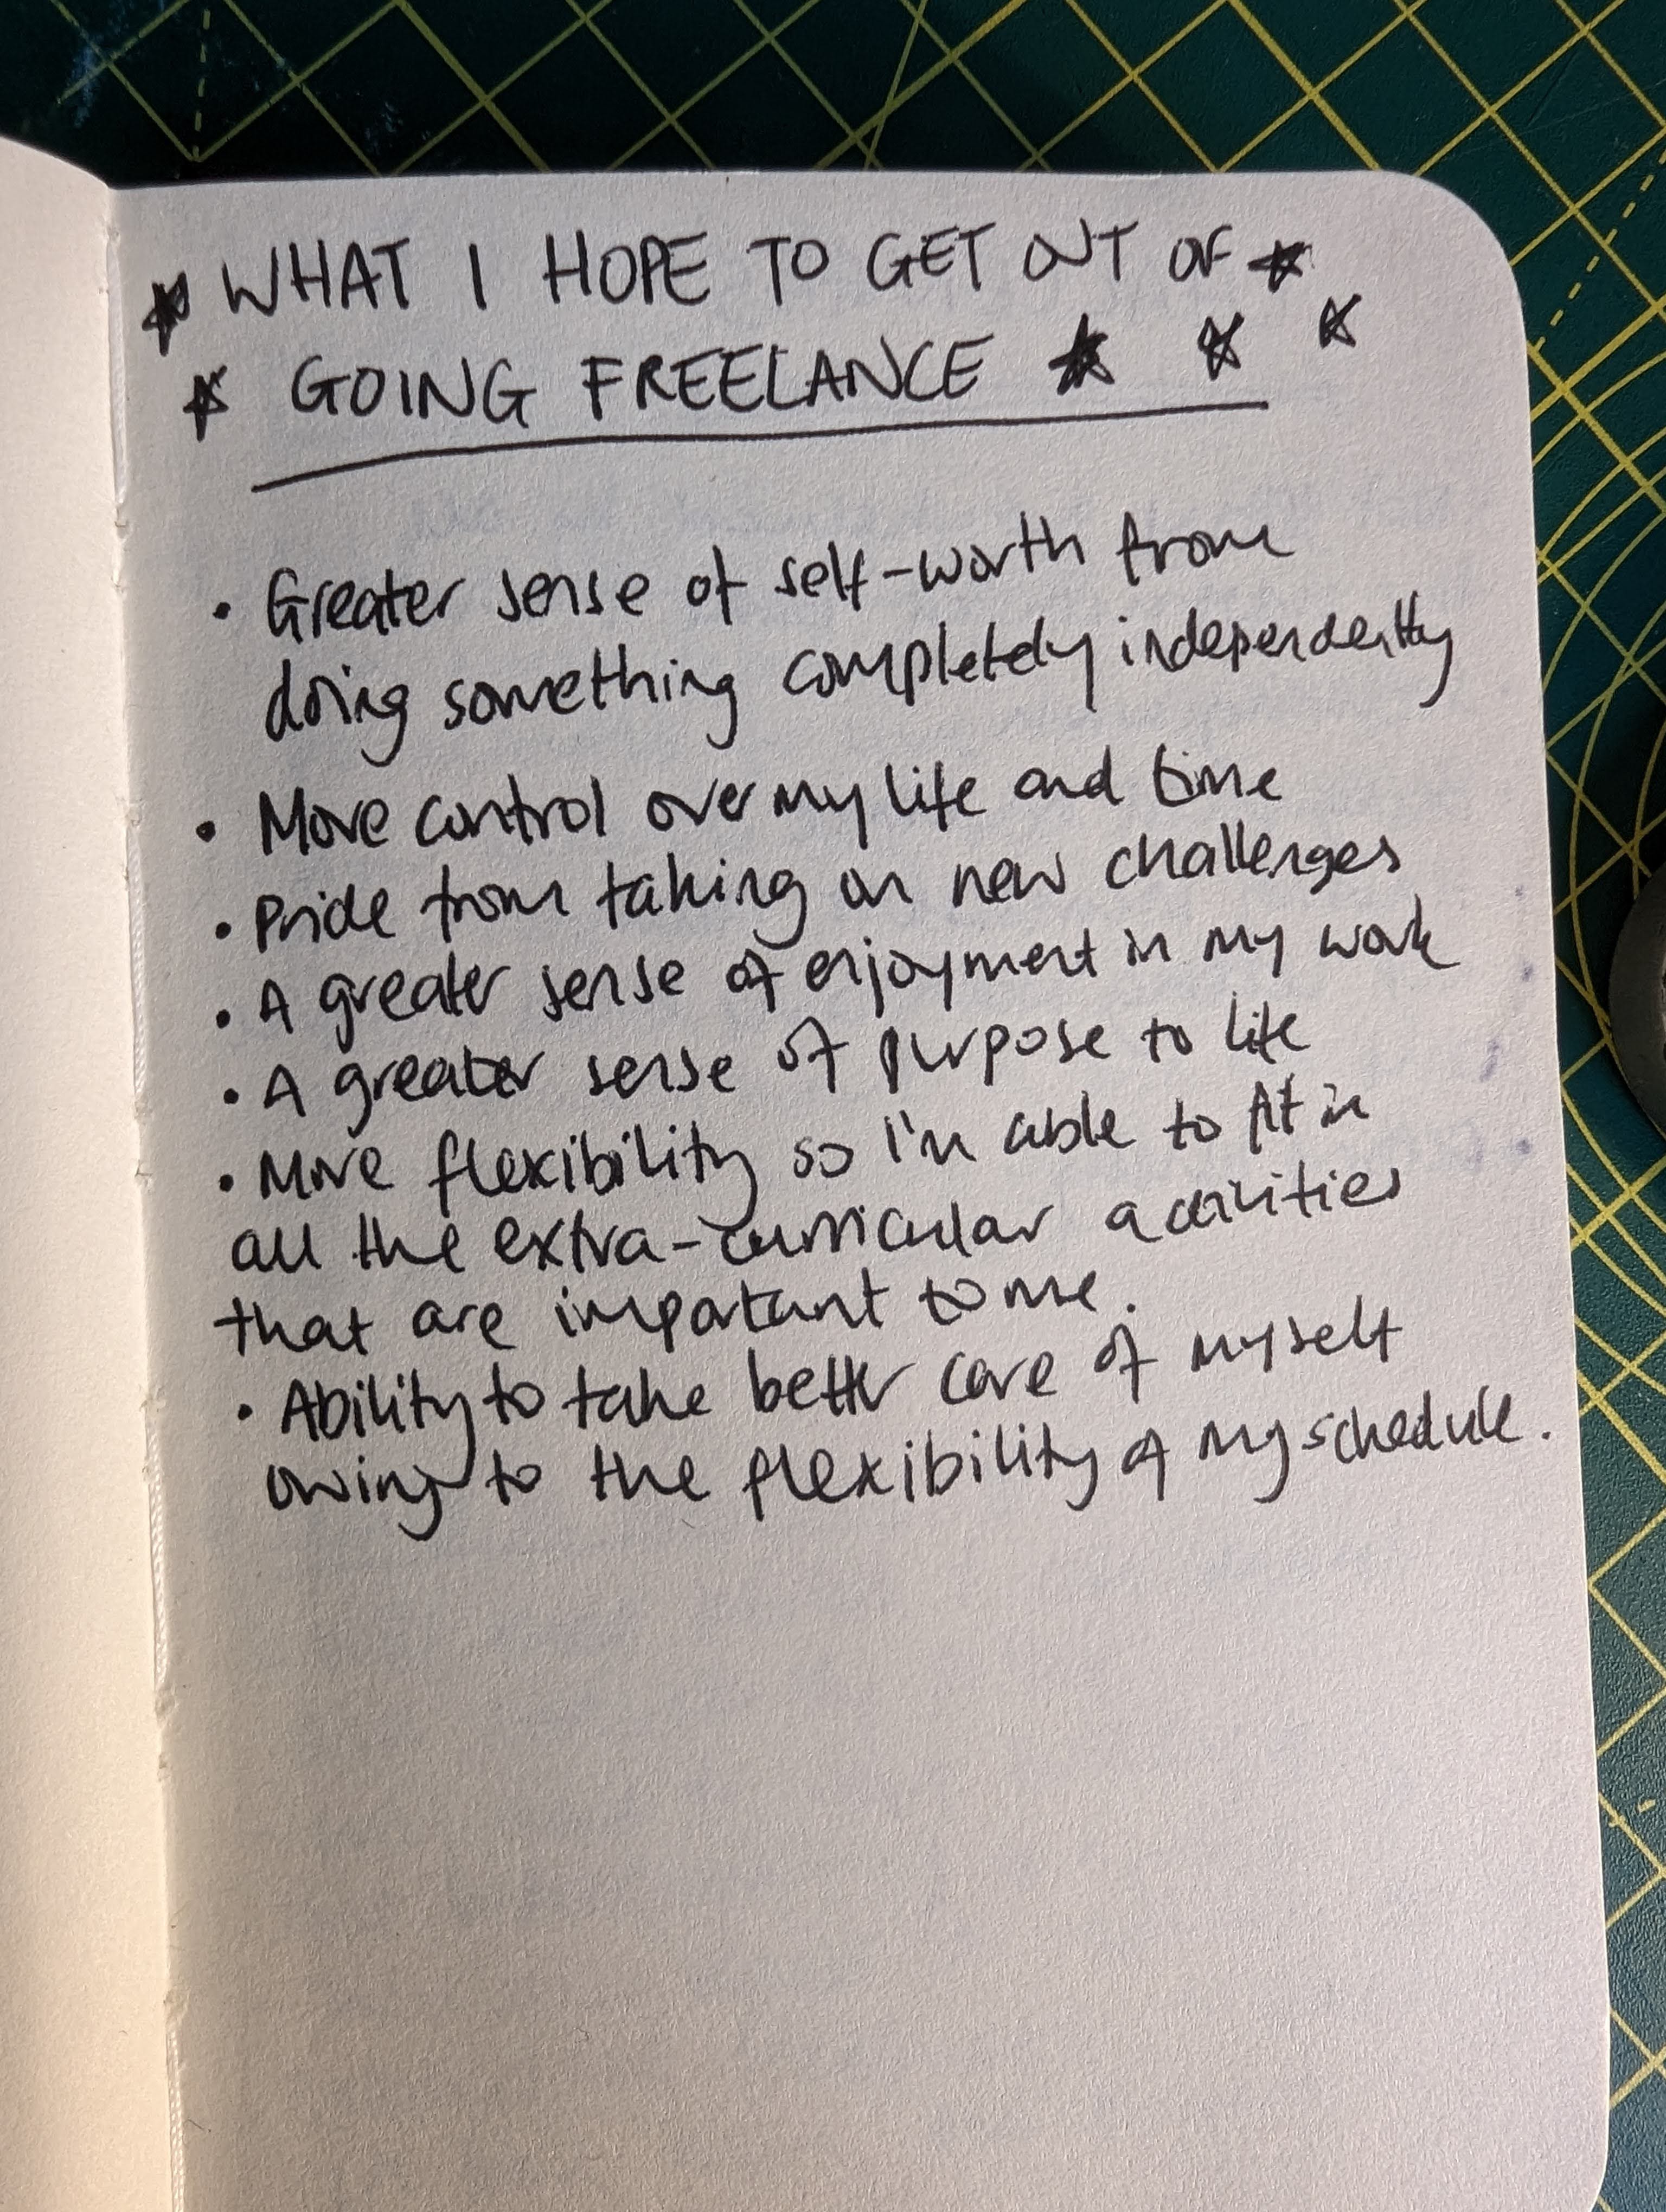 ★ WHAT I HOPE TO GET OUT OF ★
★ GOING FREELANCE ★ ★ ★
• Greater sense of self-worth from
doing something completely independently
• More control over my life and time
• Pride from taking on new challenges
• A greater sense of enjoyment in my work
• A greater sense of purpose to life
• More flexibility so I'm able to fit in
all the extra-curricular activities
that are important to me.
• Ability to take better care of myself
owing to the flexibility of my schedule.